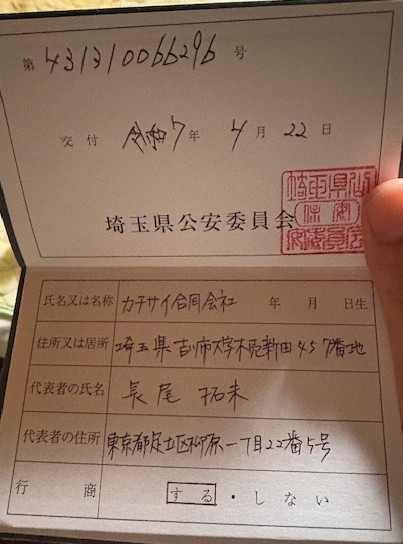 第 431310066296 号
交付 令和7年 4月 22日
埼玉県公安委員会
氏名又は名称 カチサイ合同会社 年 月 日生
住所又は居所 埼玉県吉川市大字木売新田457番地
代表者の氏名 長尾 拓未
代表者の住所 東京都足立区柳原一丁目22番5号
行商 する・しない